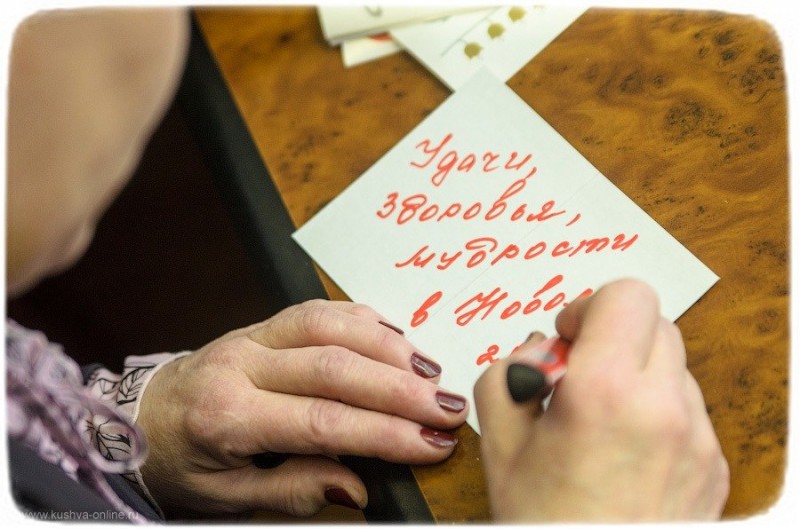 Удачи,
здоровья,
мудрости
в Новом
www.kushva-online.ru